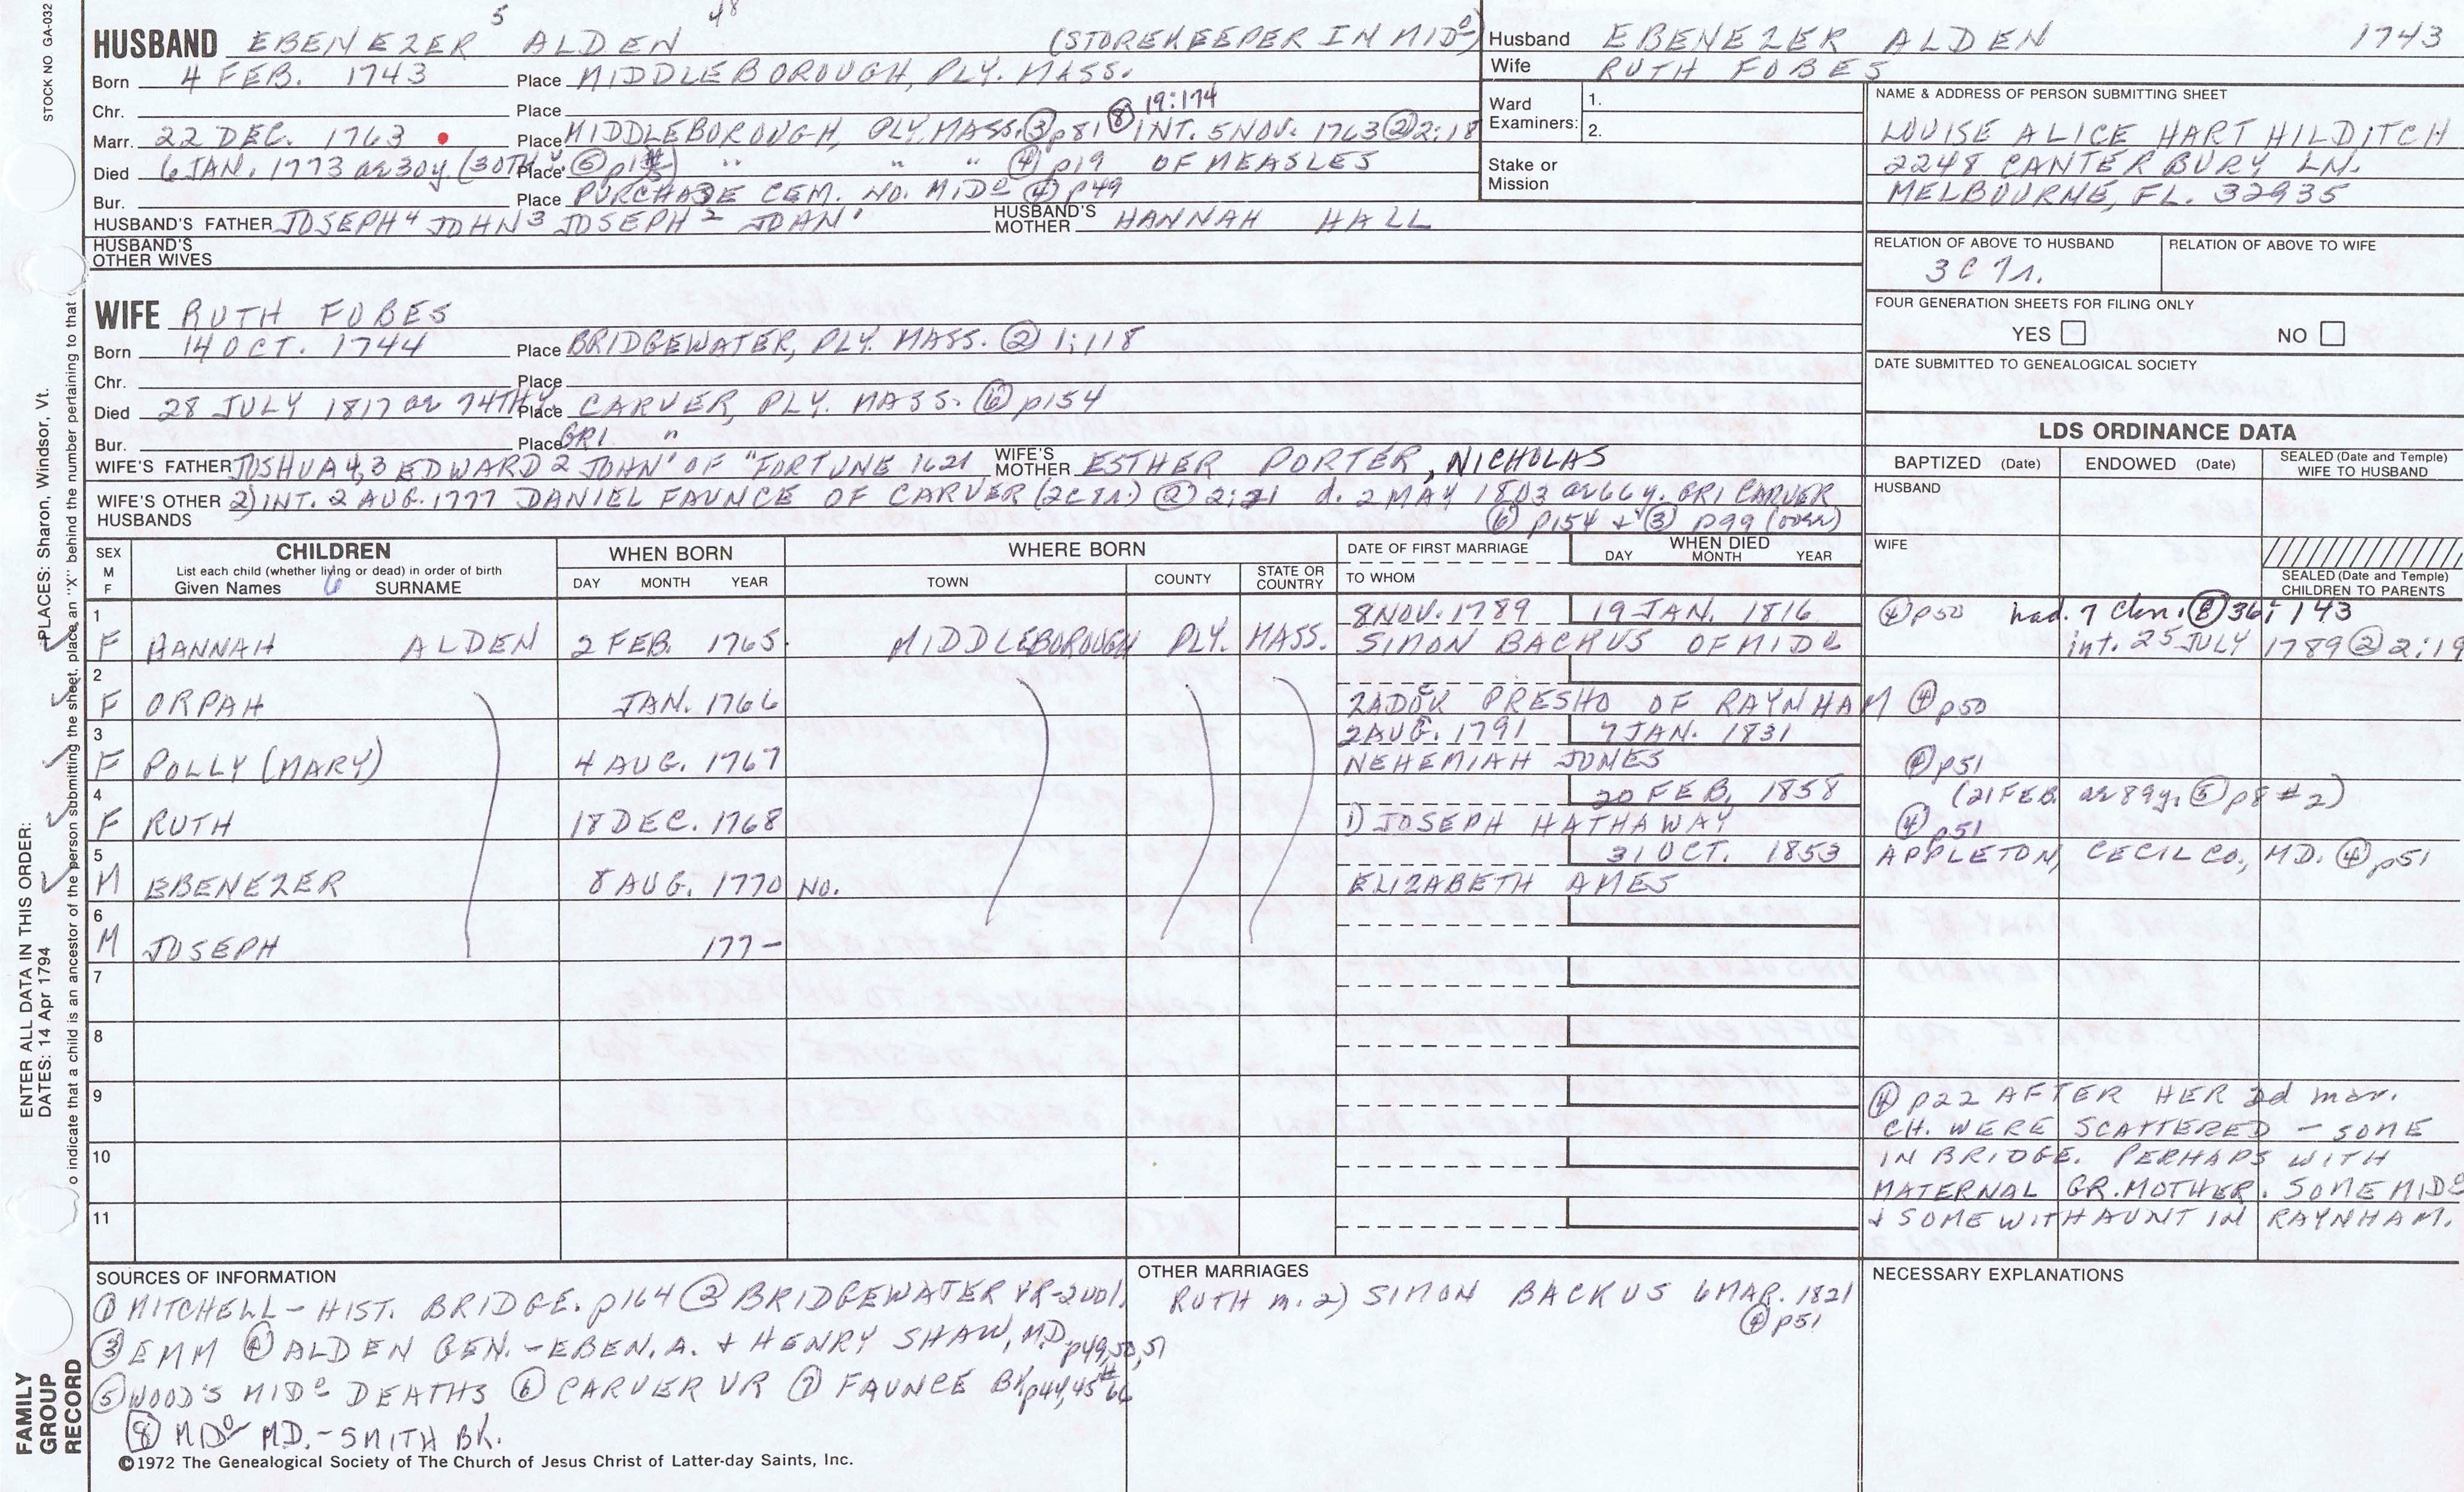 STOCK NO GA-032
5 48
HUSBAND EBENEZER ALDEN (STOREKEEPER IN MIDº)
Born 4 FEB. 1743 Place MIDDLEBOROUGH, PLY. MASS.
Chr. Place 19:174
Marr. 22 DEC. 1763 Place MIDDLEBOROUGH, PLY. MASS. ③ p81 ⑧ INT. 5 NOV. 1763 ② 2:18
Died 6 JAN. 1773 ae 30y. (30TH Y. ⑤ Place " " " ④ p19 OF MEASLES
Bur. Place PURCHADE CEM. NO. MIDº ④ p49
HUSBAND'S FATHER JOSEPH 4 JOHN 3 JOSEPH 2 JOHN ' HUSBAND'S MOTHER HANNAH HALL
HUSBAND'S OTHER WIVES
Husband EBENEZER ALDEN 1743
Wife RUTH FOBES
Ward Examiners: 1. 2.
Stake or Mission
NAME & ADDRESS OF PERSON SUBMITTING SHEET
LOUISE ALICE HART HILDITCH
2248 CANTERBURY LN.
MELBOURNE, FL. 32935
RELATION OF ABOVE TO HUSBAND RELATION OF ABOVE TO WIFE
3C 7r.
FOUR GENERATION SHEETS FOR FILING ONLY
YES NO
DATE SUBMITTED TO GENEALOGICAL SOCIETY
WIFE RUTH FOBES
Born 14 OCT. 1744 Place BRIDGEWATER, PLY. MASS. ② 1:118
Chr. Place
Died 28 JULY 1817 ae 74TH Y. Place CARVER, PLY. MASS. ⑥ p154
Bur. Place GR1 "
WIFE'S FATHER JOSHUA 4,3 EDWARD 2 JOHN ' OF "FORTUNE 1621 WIFE'S MOTHER ESTHER PORTER, NICHOLAS
WIFE'S OTHER HUSBANDS 2) INT. 2 AUG. 1777 DANIEL FAUNCE OF CARVER (2C8r.) ② 2:21 d. 2 MAY 1803 ae 66y. GR1 CARVER
⑥ p154 + ③ p99 (over)
LDS ORDINANCE DATA
BAPTIZED (Date) ENDOWED (Date) SEALED (Date and Temple) WIFE TO HUSBAND
HUSBAND
WIFE
SEALED (Date and Temple) CHILDREN TO PARENTS
SEX M F CHILDREN WHEN BORN WHERE BORN DATE OF FIRST MARRIAGE WHEN DIED
List each child (whether living or dead) in order of birth
Given Names 6 SURNAME DAY MONTH YEAR TOWN COUNTY STATE OR COUNTRY TO WHOM DAY MONTH YEAR
1 8 NOV. 1789 19 JAN. 1816 ④ p50 had 7 chn. ⑧ 36:143
F HANNAH ALDEN 2 FEB. 1765 MIDDLEBOROUGH PLY. MASS. SIMON BACKUS OF MIDº int. 25 JULY 1789 ② 2:19
2
F ORPAH JAN. 1766 ZADOC PRESHO OF RAYNHAM ④ p50
3 2 AUG. 1791 7 JAN. 1831
F POLLY (MARY) 4 AUG. 1767 NEHEMIAH JONES ④ p51
4 20 FEB. 1858 (21 FEB. ae 89y. ⑤ p8 #2)
F RUTH 18 DEC. 1768 1) JOSEPH HATHAWAY ④ p51
5 31 OCT. 1853 APPLETON, CECIL CO., MD. ④ p51
M EBENEZER 8 AUG. 1770 NO. ELIZABETH AMES
6
M JOSEPH 177-
7
8
9
10
11
④ p22 AFTER HER 2d mar.
CH. WERE SCATTERED - SOME
IN BRIDGE. PERHAPS WITH
MATERNAL GR.MOTHER. SOME MIDº
+ SOME WITH AUNT IN RAYNHAM.
SOURCES OF INFORMATION
① MITCHELL - HIST. BRIDGE. p164 ② BRIDGEWATER VR-2 vol.
③ EMM ④ ALDEN GEN. - EBEN. A. + HENRY SHAW, M.D. p49,50,51
⑤ WOOD'S MIDº DEATHS ⑥ CARVER VR ⑦ FAUNCE BK p44,45 #66
⑧ MIDº M.D. - SMITH BK.
OTHER MARRIAGES
RUTH m. 2) SIMON BACKUS 6 MAR. 1821
④ p51
NECESSARY EXPLANATIONS
©1972 The Genealogical Society of The Church of Jesus Christ of Latter-day Saints, Inc.
FAMILY GROUP RECORD
ENTER ALL DATA IN THIS ORDER:
DATES: 14 Apr 1794 PLACES: Sharon, Windsor, Vt.
o indicate that a child is an ancestor of the person submitting the sheet, place an "X" behind the number pertaining to that